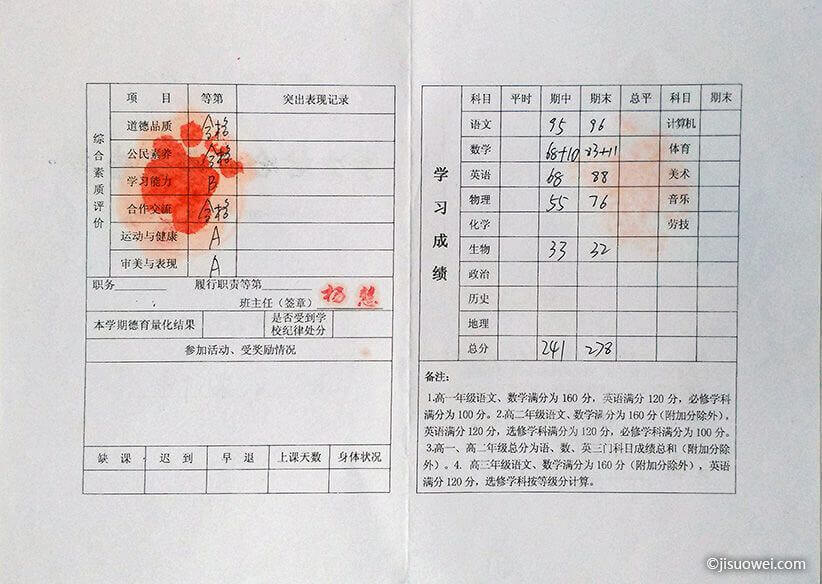 综合素质评价
项 目 等第 突出表现记录
道德品质 合格
公民素养 合格
学习能力 B
合作交流 合格
运动与健康 A
审美与表现 A
职务 履行职责等第
班主任（签章）
本学期德育量化结果 是否受到学校纪律处分
参加活动、受奖励情况
缺 课 迟 到 早 退 上课天数 身体状况
学习成绩
科目 平时 期中 期末 总平 科目 期末
语文 95 96 计算机
数学 68+10 83+11 体育
英语 68 88 美术
物理 55 76 音乐
化学 劳技
生物 33 32
政治
历史
地理
总分 241 278
备注：
1.高一年级语文、数学满分为 160 分，英语满分 120 分，必修学科
满分为 100 分。2.高二年级语文、数学满分为 160 分(附加分除外)，
英语满分 120 分，选修学科满分为 120 分，必修学科满分为 100 分。
3.高一、高二年级总分为语、数、英三门科目成绩总和(附加分除
外)。4. 高三年级语文、数学满分为 160 分 (附加分除外)，英语
满分 120 分，选修学科按等级分计算。
©jisuowei.com